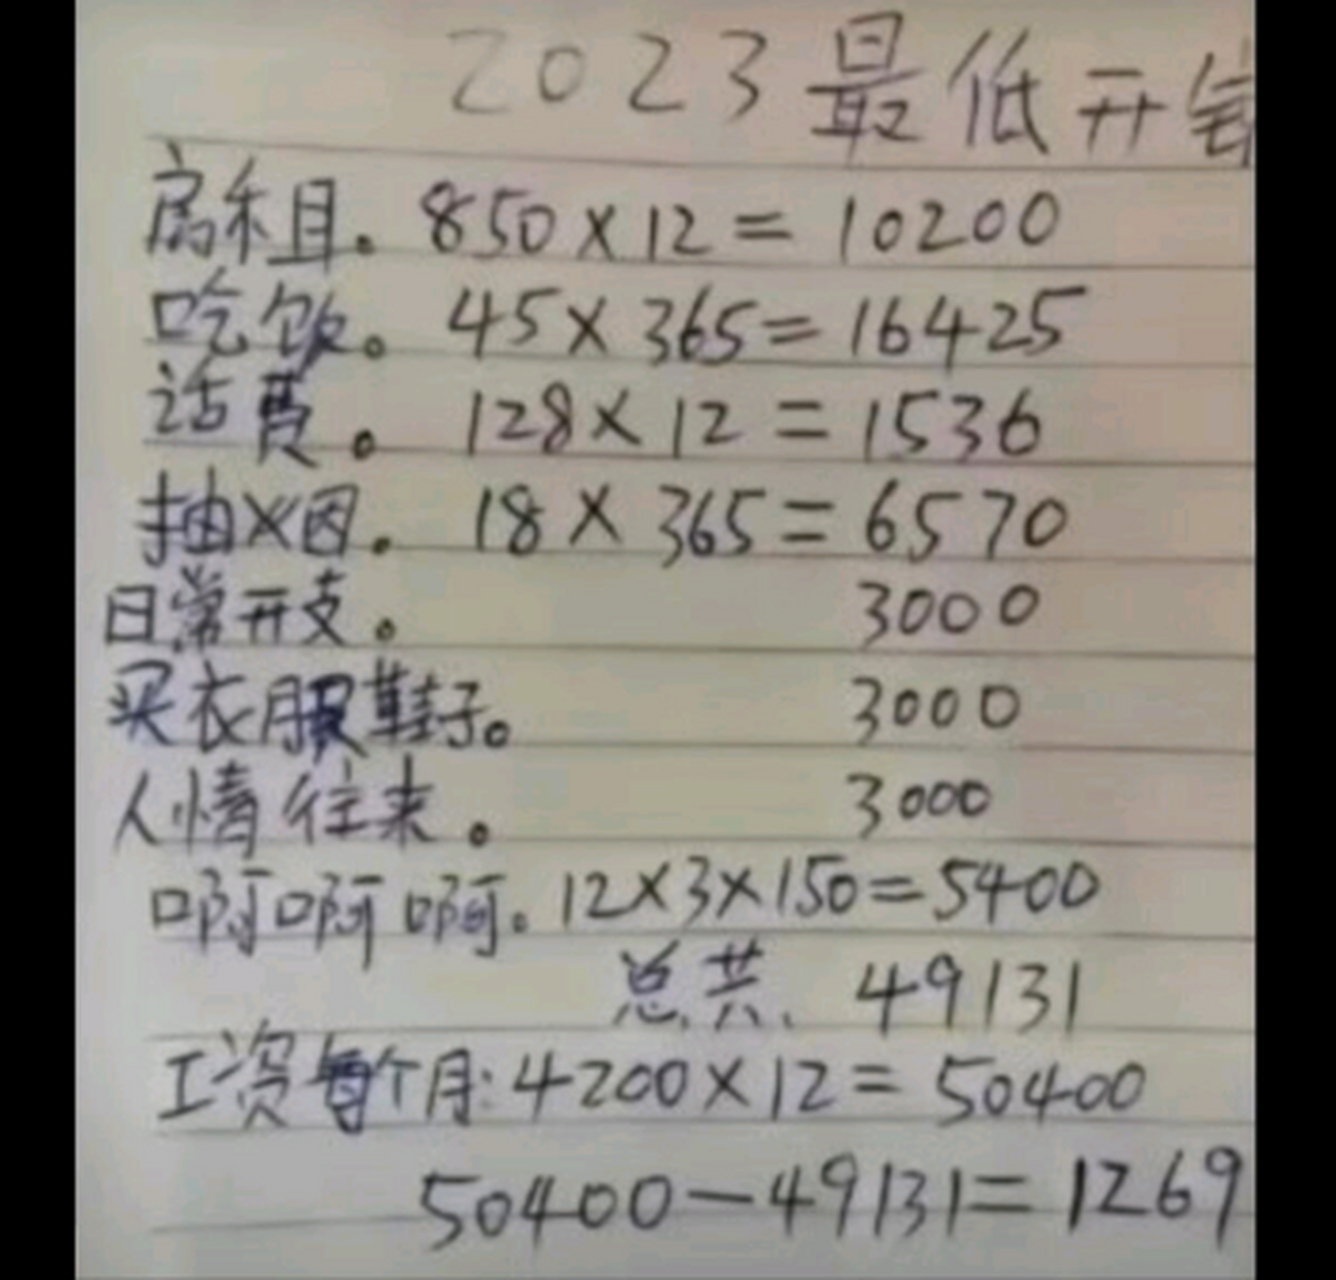 2023最低开销
房租。850×12=10200
吃饭。45×365=16425
话费。128×12=1536
抽烟。18×365=6570
日常开支。3000
买衣服鞋子。3000
人情往来。3000
啊啊啊。12×3×150=5400
总共、49131
工资每个月:4200×12=50400
50400-49131=1269